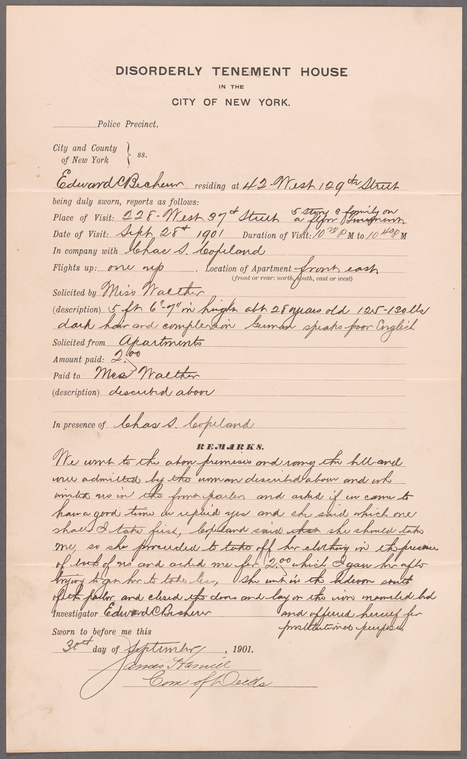 DISORDERLY TENEMENT HOUSE
IN THE
CITY OF NEW YORK.
Police Precinct.
City and County
of New York } ss.
Edward C Becherer residing at 42 West 129th Street
being duly sworn, reports as follows:
Place of Visit: 228 - West 37th Street 5 story 2 family on
a floor
Date of Visit: Sept 28th 1901 Duration of Visit: 10 P M to 10 M
In company with Chas S. Copeland
Flights up: one up Location of Apartment front east
(front or rear: north, south, east or west)
Solicited by Miss Walther
(description) 5 ft 6-7" in height abt 28 years old 125-130 lbs
dark hair and complexion German speaks poor English
Solicited from Apartments
Amount paid: 2.00
Paid to Miss Walther
(description) described above
In presence of Chas S. Copeland
REMARKS.
We went to the above premises and rang the bell and
were admitted by the woman described above and who
invited us in the front parlor and asked if we came to
have a good time we replied yes and she said which one
shall I take first, Copeland said that she should take
me, so she proceeded to take off her clothing in the presence
of both of us and asked me for 2.00 which I gave her after
trying to get her to take less, She went in the bedroom south
of the parlor, and closed the doors and lay on the iron bed
and offered herself for
prostitution purposes
Investigator Edward C Becherer
Sworn to before me this
30th day of September, 1901.
James Hamill
Com of Deeds